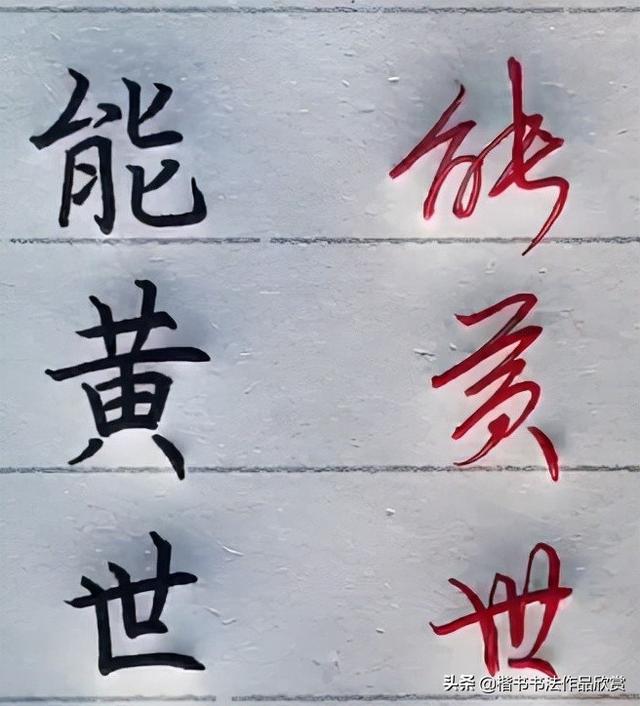 能 能
黄 黄
世 世
头条 @楷书书法作品欣赏